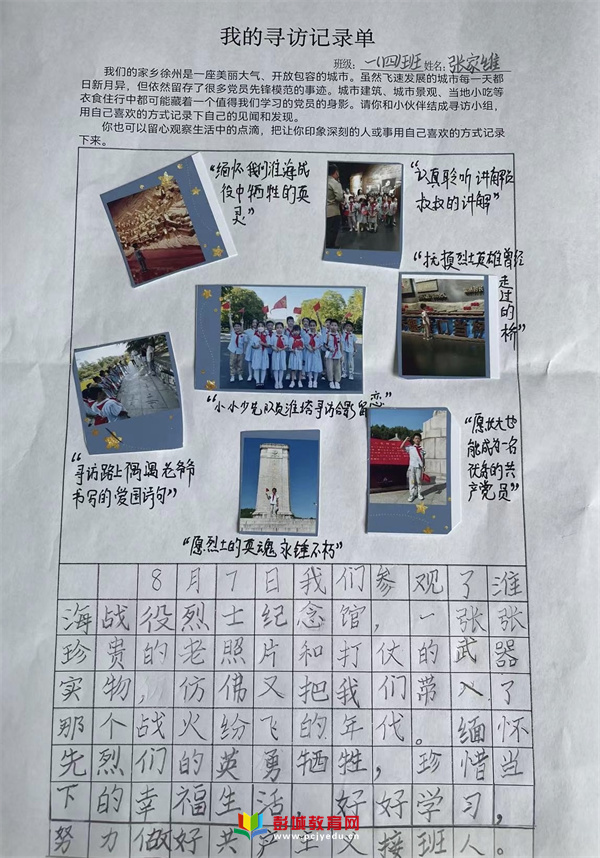 我的寻访记录单
班级：一（四）班 姓名：张家维
我们的家乡徐州是一座美丽大气、开放包容的城市。虽然飞速发展的城市每一天都
日新月异，但依然留存了很多党员先锋模范的事迹。城市建筑、城市景观、当地小吃等
衣食住行中都可能藏着一个值得我们学习的党员的身影。请你和小伙伴结成寻访小组，
用自己喜欢的方式记录下自己的见闻和发现。
你也可以留心观察生活中的点滴，把让你印象深刻的人或事用自己喜欢的方式记录
下来。
“缅怀我们淮海战
役中牺牲的英
灵”
“认真聆听讲解员
叔叔的讲解”
“抗损烈士英雄曾经
走过的桥”
“小小少先队员淮塔寻访合影留恋”
“寻访路上偶遇老爷爷
书写的爱国诗句”
“愿长大也
能成为一名
优秀的共
产党员”
“愿烈士的英魂永锤不朽”
8月7日我们参观了淮
海战役烈士纪念馆，一张张
珍贵的老照片和打仗的武器
实物，仿佛又把我们带入了
那个战火纷飞的年代。缅怀
先烈们的英勇牺牲，珍惜当
下的幸福生活，好好学习，
努力做好共产主义接班人。
彭城教育网
www.pcjyedu.cn